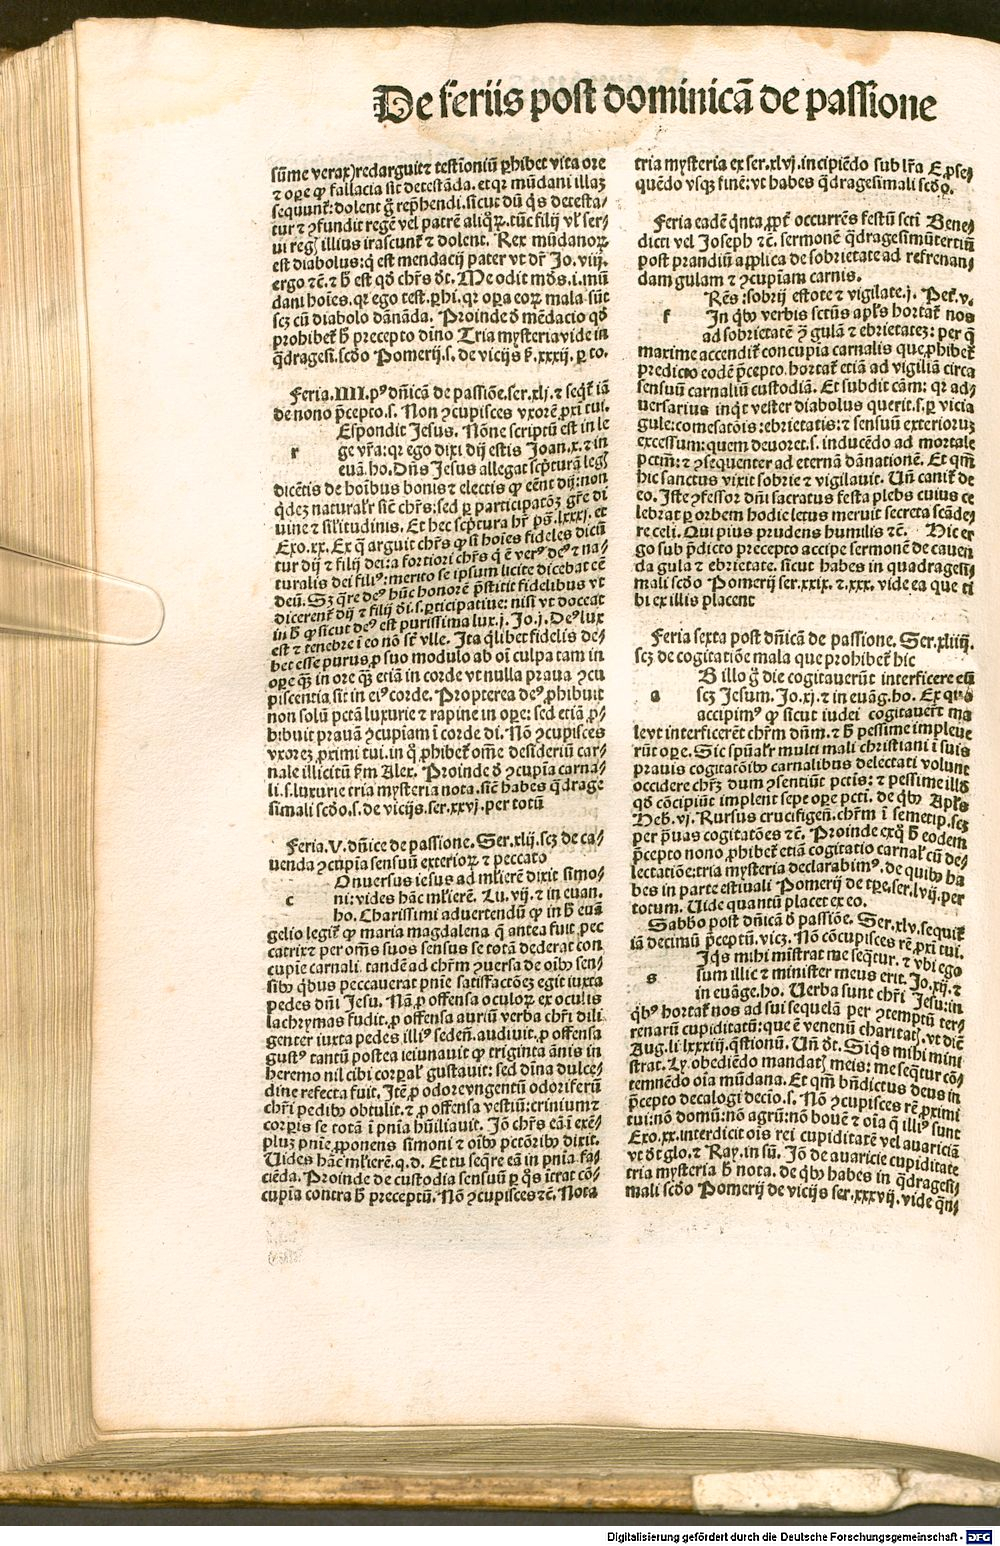 De feriis post dominicã de passione
sũme verax) redarguit⁊ testioniũ ꝑhibet vita ore
⁊ oꝑe ꝙ fallacia sit detestãda. et qꝛ mũdani illaȝ
sequunt̃: dolent g̃ rep̃hendi. sicut dũ q̃s detesta⸗
tur ⁊ ꝯfundit regẽ vel patrẽ aliqͦꝝ. tũc filij vl̃ ser⸗
ui regꝭ illius irascunt̃ ⁊ dolent. Rex mũdanoꝝ
est diabolus: q̃ est mendacij pater vt dr̃ Jo. viij.
ergo ⁊c̃. ⁊ h̃ est qd̃ chr̃s d̃t. Me odit mũdꝰ .i. mũ
dani hoĩes. qꝛ ego test. ꝑhi. qꝛ oꝑa eoꝝ mala sũt
scȝ cũ diabolo dãnãda. Proinde d̃ mẽdacio qd̃
prohibet̃ h̃ precepto diuino Tria mysteria vide in
q̃dragesi. scd̃o Pomerij. s. de vicijs ẞ. xxxij. ꝑ to.
Feria. IIII. pꝰ dñicã de passiõe. ser. xlj. ⁊ seqt̃ iã
de nono p̃cepto. s. Non ꝯcupisces vxorẽ ꝓxi tui.
r Espondit Jesus. Nõne scriptũ est in le
ge vr̃a: qꝛ ego dixi dij estis Joan. x. ⁊ in
euã. ho. Dñs Jesus allegat scp̃turã legꝭ
dicẽtis de hoĩbus bonis ⁊ electis ꝙ eẽnt dij: non
q̃dez naturalr̃ sic̃ chr̃s: sed ꝑ participatõȝ gr̃e di
uine ⁊ sil̃itudinis. Et hec scp̃tura hr̃ ps̃. lxxxj. et
Exo. xx. Ex q̃ arguit chr̃s ꝙ si hoĩes fideles dicũ
tur dij ⁊ filij dei: a fortiori chr̃s q̃ ẽ verꝰ deꝰ ⁊ na⸗
turalis dei filiꝰ: merito se ipsum licite dicebat eẽ
deũ. Sȝ q̃re deꝰ hũc honorẽ p̃stitit fidelibus vt
dicerent̃ dij ⁊ filij d̃i. s. ꝑticipatiue: nisi vt doceat
in h̃ ꝙ sicut deꝰ est purissima lux. j. Jo. j. Deꝰ lux
est ⁊ tenebre ĩ eo nõ st̃ vlle. Ita q̃libet fidelis de⸗
bet esse purus ꝓ suo modulo ab oĩ culpa tam in
oꝑe q̃ȝ in ore q̃ȝ etiã in corde vt nulla praua ꝯcu
piscentia sit in eiꝰ corde. Propterea deꝰ ꝓhibuit
non solũ pctã luxurie ⁊ rapine in oꝑe: sed etiã ꝓ⸗
hibuit prauã ꝯcupiam ĩ corde di. Nõ ꝯcupisces
vxoreȝ ꝓximi tui. in q̃ ꝓhibet̃ om̃e desideriũ car⸗
nale illicitũ ẞm Alex. Proinde d̃ ꝯcupia carna⸗
li. s. luxurie tria mysteria nota. sic̃ habes q̃drage
simali scd̃o. s. de vicijs. ser. xxvj. per totũ
Feria. V. dñice de passione. Ser. xlij. scȝ de ca⸗
uenda ꝯcupia sensuũ exterioꝝ ⁊ peccato
c Onuersus iesus ad ml̃ierẽ dixit simo⸗
ni: vides hãc ml̃ierẽ. Lu. vij. ⁊ in euan.
ho. Charissimi aduertendũ ꝙ in h̃ euã
gelio legit̃ ꝙ maria magdalena q̃ antea fuit pec
catrix⁊ per om̃s suos sensus se totã dederat con
cupie carnali. tandẽ ad chr̃m ꝯuersa de oĩbꝰ sen⸗
sibꝰ q̃bus peccauerat pñie satisfactõeȝ egit iuxta
pedes dñi Jesu. Nã ꝓ offensa oculoꝝ ex oculis
lachrymas fudit. ꝓ offensa auriũ verba chr̃i dili
genter iuxta pedes illiꝰ sedeñ. audiuit. ꝓ offensa
gustꝰ tantũ postea ieiunauit ꝙ triginta ãnis in
heremo nil cibi corꝑal̃ gustauit: sed diuina dulce⸗
dine refecta fuit. Itẽ ꝓ odore vngentũ odoriferũ
chr̃i pedibꝰ obtulit. ⁊ ꝓ offensa vestiũ: crinium⁊
corꝑis se totã ĩ pñia hũiliauit. Jõ chr̃s eã ĩ exẽ⸗
pluȝ pñie ꝓponens simoni ⁊ oĩbꝰ pctõribꝰ dixit.
Vides hãc ml̃ierẽ. q. d. Et tu seq̃re eã in pñia fa⸗
ciẽda. Proinde de custodia sensuũ ꝑ q̃s ĩtrat cõ⸗
cupia contra h̃ preceptũ. Nõ ꝯcupisces⁊c̃. Nota
tria mysteria ex ser. xlvj. incipiẽdo sub lr̃a E ꝓse⸗
quẽdo vsqȝ finẽ: vt habes q̃dragesimali scd̃o.
Feria eadẽ q̃nta ꝓpt̃ occurrẽs festũ scti Bene⸗
dicti vel Joseph ⁊c̃. sermonẽ q̃dragesimũtertiũ
post prandiũ applica de sobrietate ad refrenan⸗
dam gulam ⁊ ꝯcupiam carnis.
f Rẽs: sobrij estote ⁊ vigilate. j. Pet̃. v.
In q̃bꝰ verbis sctũs aplũs hortat̃ nos
ad sobrietatẽ ꝯ̃ gulã ⁊ ebrietateȝ: per q̃
maxime accendit̃ concupia carnalis que ꝓhibet̃
predicto eodẽ p̃cepto. hortat̃ etiã ad vigiliã circa
sensuũ carnaliũ custodiã. Et subdit cãm: qꝛ ad⸗
uersarius inqͥt vester diabolus querit. s. ꝑ vicia
gule: comesatõis: ebrietatis: ⁊ sensuũ exterioruȝ
excessum: quem deuoret. s. inducẽdo ad mortale
pctm̃: ⁊ ꝯsequenter ad eternã dãnationẽ. Et qm̃
hic sanctus vixit sobrie ⁊ vigilauit. Vñ canit̃ de
eo. Iste ꝯfessor dñi sacratus festa plebs cuius ce
lebrat ꝑ orbem hodie letus meruit secreta scãde⸗
re celi. Qui pius prudens humilis ⁊c̃. Hic er
go sub p̃dicto precepto accipe sermonẽ de cauen
da gula ⁊ ebrietate. sicut habes in quadragesi
mali scd̃o Pomerij ser. xxix. ⁊. xxx. vide ea que ti
bi ex illis placent
Feria sexta post dñicã de passione. Ser. xliiij.
scȝ de cogitatiõe mala que prohibet̃ hic
a B illo g̃ die cogitauerũt interficere eũ
scȝ Jesum. Jo. xj. ⁊ in euãg. ho. Ex quo
accipimꝰ ꝙ sicut iudei cogitauert̃ ma
le vt interficerent chr̃m dñm. ⁊ h̃ pessime impleue
rũt oꝑe. Sic spũalr̃ multi mali christiani ĩ suis
prauis cogitatõibꝰ carnalibus delectati volunt
occidere chr̃ȝ dum ꝯsentiũt pctis: ⁊ pessime illd̃
qd̃ cõcipiũt implent sepe oꝑe pcti. de q̃bꝰ Apl̃s
Heb. vj. Rursus crucifigeñ. chr̃m ĩ semetip. scȝ
per p̃uas cogitatões ⁊c̃. Proinde exq̃ h̃ eodem
p̃cepto nono ꝓhibet̃ etiã cogitatio carnal̃ cũ de⸗
lectatiõe: tria mysteria declarabimꝰ. de quibꝰ ha
bes in parte estiuali Pomerij de tꝑe. ser. lvij. per
totum. Vide quantũ placet ex eo.
Sabbo post dñicã d̃ passiõe. Ser. xlv. sequit̃
iã decimũ p̃ceptũ. vicȝ. Nõ cõcupisces rẽ ꝓxi tui.
s Iq̃s mihi mĩstrat me seq̃tur. ⁊ vbi ego
sum illic ⁊ minister meus erit. Jo. xij. ⁊
in euãge. ho. Verba sunt chr̃i Jesu: in
q̃bꝰ hortat̃ nos ad sui sequelã per ꝯtemptũ ter⸗
renarũ cupiditatũ: que ẽ venenũ charitatꝭ. vt dic̃
Aug. li. lxxxiij. q̃stionũ. Vñ d̃t. Siq̃s mihi mini
strat. Ex obediẽdo mandatꝭ meis: me seq̃tur cõ⸗
temnẽdo oĩa mũdana. Et qm̃ bñdictus deus in
p̃cepto decalogi decĩo. s. Nõ ꝯcupisces rẽ ꝓximi
tui: nõ domũ: nõ agrũ: nõ bouẽ ⁊ oĩa q̃ illiꝰ sunt
Exo. xx. interdicit oĩs rei cupiditatẽ vel auariciã
vt d̃t glo. ⁊ Ray. in sũ. Jõ de auaricie cupiditate
tria mysteria h̃ nota. de q̃bꝰ habes in q̃dragesi⸗
mali scd̃o Pomerij de vicijs ser. xxxvij. vide q̃ni⸗
Digitalisierung gefördert durch die Deutsche Forschungsgemeinschaft - DFG